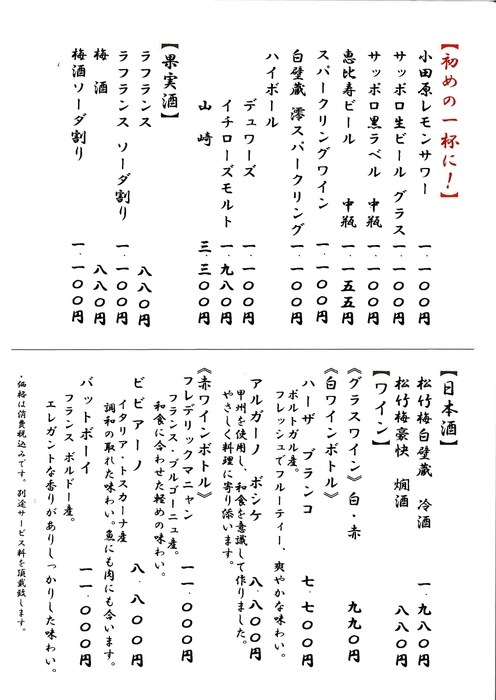 【初めの一杯に！】
小田原レモンサワー 一．一〇〇円
サッポロ生ビール グラス 一．一〇〇円
サッポロ黒ラベル 中瓶 一．一〇〇円
恵比寿ビール 中瓶 一．一五五円
スパークリングワイン 一．一〇〇円
白壁蔵 澪スパークリング 一．一〇〇円
ハイボール
デュワーズ 一．一〇〇円
イチローズモルト 一．九八〇円
山崎 三．三〇〇円
【果実酒】
ラフランス 八八〇円
ラフランス ソーダ割り 一．一〇〇円
梅酒 八八〇円
梅酒ソーダ割り 一．一〇〇円
【日本酒】
松竹梅白壁蔵 冷酒 一．九八〇円
松竹梅豪快 燗酒 八八〇円
【ワイン】
《グラスワイン》白・赤 九九〇円
《白ワインボトル》
ハーザ ブランコ 七．七〇〇円
ポルトガル産。
フレッシュでフルーティー、爽やかな味わい。
アルガーノ ボシケ 八．八〇〇円
甲州を使用し、和食を意識して作りました。
やさしく料理に寄り添います。
《赤ワインボトル》
フレデリックマニャン 一一．〇〇〇円
フランス・ブルゴーニュ産。
和食に合わせた軽めの味わい。
ビビアーノ 八．八〇〇円
イタリア・トスカーナ産
調和の取れた味わい。魚にも肉にも合います。
バットボーイ 一一．〇〇〇円
フランス ボルドー産。
エレガントな香りがありしっかりした味わい。
・価格は消費税込みです。別途サービス料を頂戴致します。